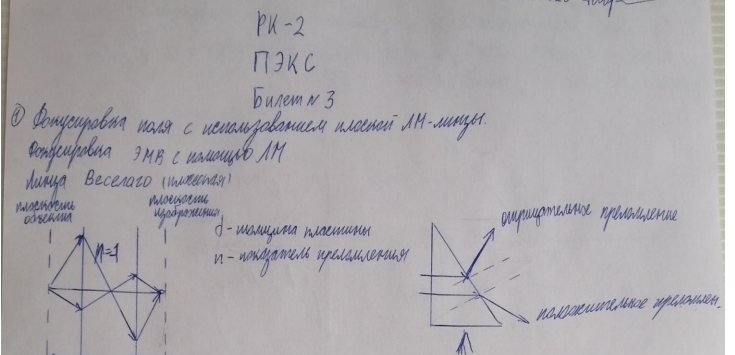 РК-2
ПЭКС
Билет №3
① Фокусировка поля с использованием плоской ЛМ-линзы.
Фокусировка ЭМВ с помощью ЛМ
Линза Веселаго (плоская)
плоскость объекта
плоскость изображения
n=1
d - толщина пластины
n - показатель преломления
отрицательное преломление
положительное преломлен.